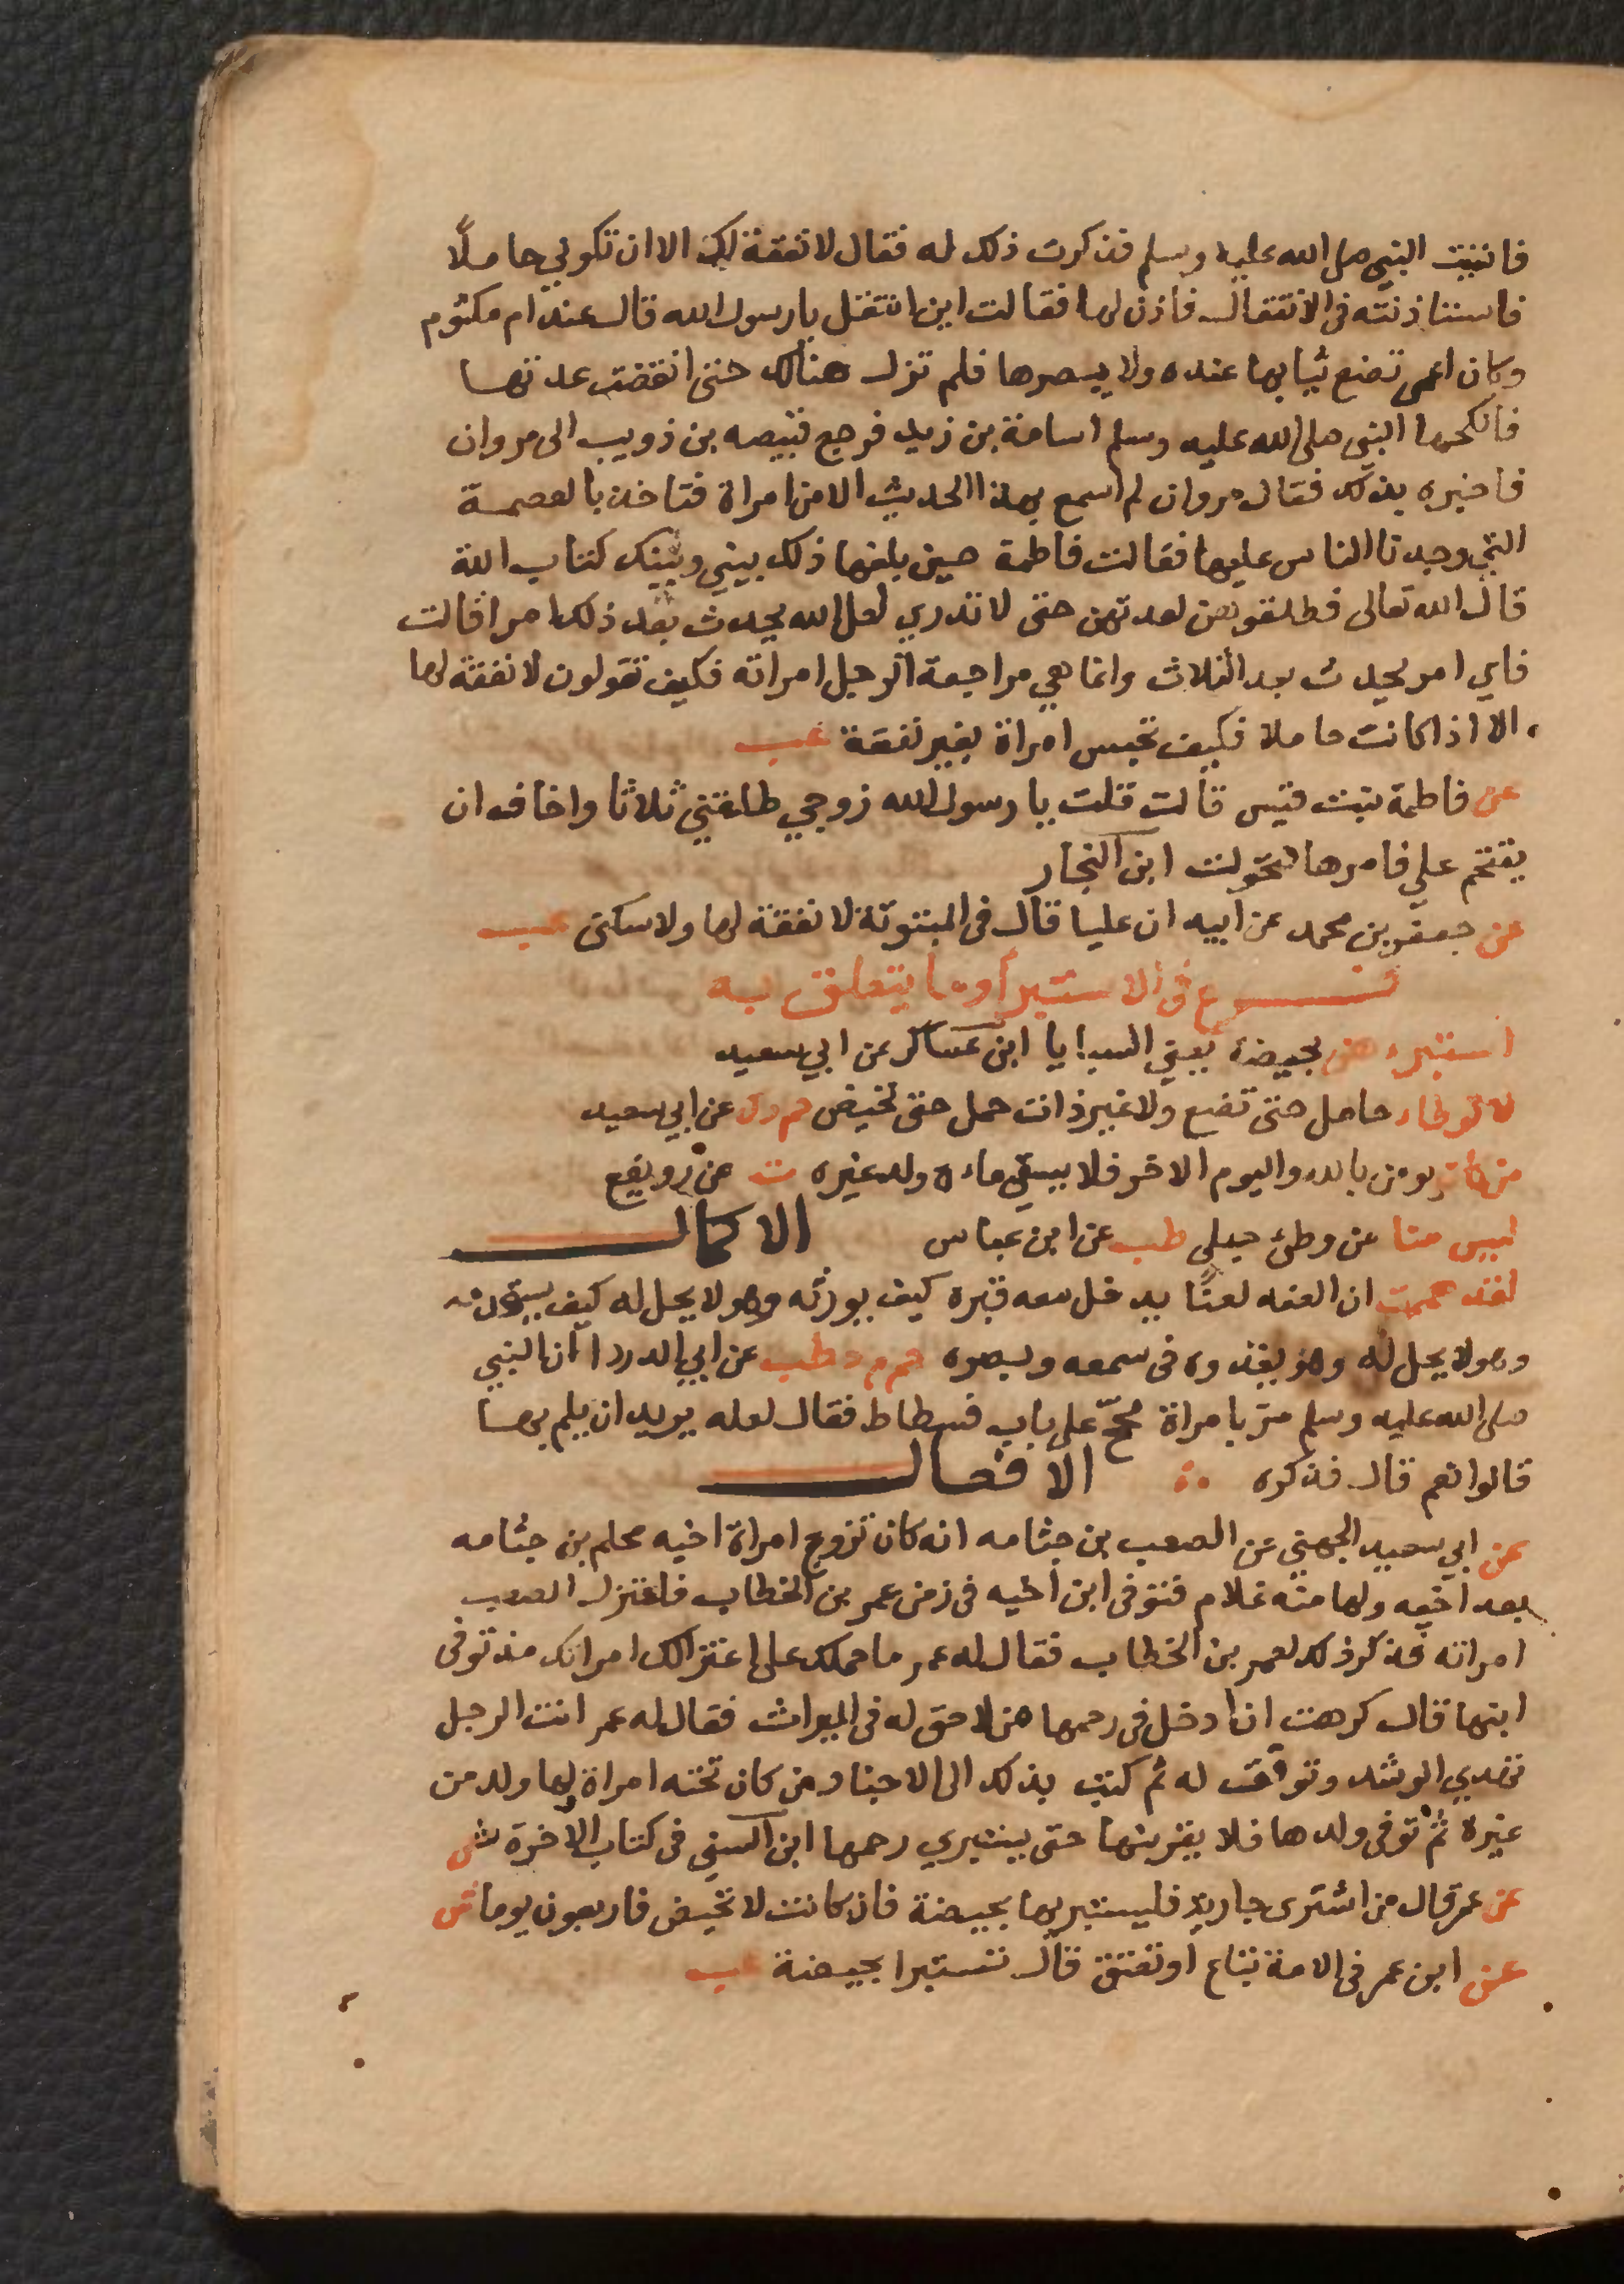 فاتيت النبي صلى الله عليه وسلم فذكرت ذلك له فقال لا نفقة لك الا ان تكوني حاملًا
فاستاذنته في الانتقال فاذن لها فقالت اين انتقل يا رسول الله قال عند ام مكتوم
وكان اعمى تضع ثيابها عنده ولا يبصرها فلم تزل هنالك حتى انقضت عدتها
فانكحها النبي صلى الله عليه وسلم اسامة بن زيد فرجع قبيصه بن ذويب الى مروان
فاخبره بذلك فقال مروان لم اسمع بهذا الحديث الا من امراة فتاخذ بالعصمة
التي وجدنا الناس عليها فقالت فاطمة حين بلغها ذلك بيني وبينك كتاب الله
قال الله تعالى فطلقوهن لعدتهن حتى لا تدري لعل الله يحدث بعد ذلك امرا قالت
فاي امر يحدث بعد الثلاث وانما هي مراجعة الرجل امراته فكيف تقولون لا نفقة لها
الا اذا كانت حاملا فكيف تحبس امراة بغير نفقة عب
عن فاطمة بنت قيس قالت قلت يا رسول الله زوجي طلقني ثلاثا واخاف ان
يقتحم علي فامرها فتحولت ابن النجار
عن جعفر بن محمد عن ابيه ان عليا قال في المبتوتة لا نفقة لها ولا سكنى عب
فرع في الاستبرا وما يتعلق به
استبرءهن بحيضة يعني السبايا ابن عساكر عن ابي سعيد
لا توطا حامل حتى تضع ولا غير ذات حمل حتى تحيض حم د ك عن ابي سعيد
من كان يومن بالله واليوم الاخر فلا يسقي ماءه ولد غيره ت عن رويفع
ليس منا من وطئ حبلى طب عن ابن عباس الاكمال
لقد هممت ان العنه لعنًا يدخل معه قبره كيف يورثه وهو لا يحل له كيف يسترقه
وهو لا يحل له وهو يغذوه في سمعه وبصره حم م د طب عن ابي الدردا ان النبي
صلى الله عليه وسلم مرّ بامراة مجحّ على باب فسطاط فقال لعله يريد ان يلم بها
قالوا نعم قال فذكره الافعال
عن ابي سعيد الجهني عن الصعب بن جثامه انه كان تزوج امراة اخيه محلم بن جثامه
بعد اخيه ولها منه غلام فتوفى ابن اخيه في زمن عمر بن الخطاب فاعتزل الصعب
امراته فذكر ذلك لعمر بن الخطاب فقال له عمر ما حملك على اعتزالك امراتك منذ توفى
ابنها قال كرهت ان ادخل في رحمها من لا حق له في الميراث فقال له عمر انت الرجل
تهدي الرشد وتوفق له ثم كتب بذلك الى الاجناد من كان تحته امراة لها ولد من
غيره ثم توفى ولدها فلا يقربنها حتى يستبري رحمها ابن السني في كتاب الاخوة ش
عن عمر قال من اشترى جارية فليستبريها بحيضة فان كانت لا تحيض فاربعون يوما ش
عن ابن عمر في الامة تباع او تعتق قال تستبرا بحيضة عب